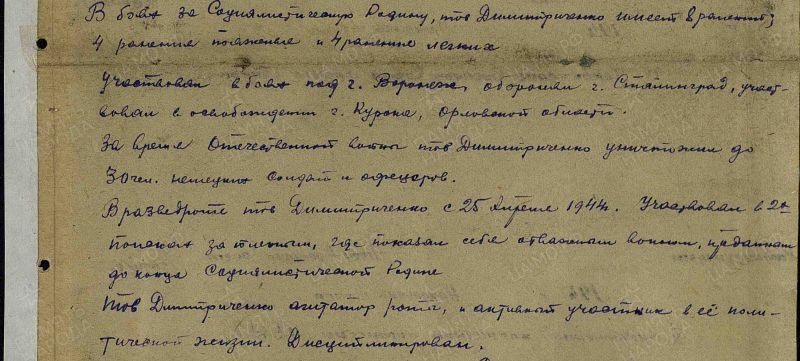 В боях за Социалистическую Родину, тов Димитриченко имеет 8 ранений;
4 ранения тяжелые и 4 ранение легких
Участвовал в боях под г. Воронеж, оборонял г. Сталинград, участ-
вовал в освобождении г. Курска, Орловской области.
За время Отечественной войны тов Димитриченко уничтожил до
30 чел. немецких солдат и офицеров.
В разведроте тов Димитриченко с 25 Апреля 1944г. Участвовал в 2х
поисках за пленным, где показал себя отважным воином, преданным
до конца Социалистической Родине
Тов Димитриченко агитатор роты, и активный участник в её поли-
тической жизни. Дисциплинирован.